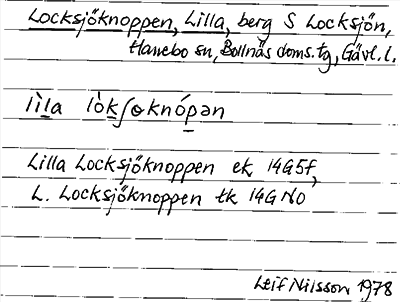 Locksjöknoppen, Lilla, berg S Locksjön,
Hanebo sn, Bollnäs doms.tg, Gävl.l.
lìla lòkʃɵknópən
Lilla Locksjöknoppen ek 14G5f,
L. Locksjöknoppen tk 14G NO
Leif Nilsson 1978